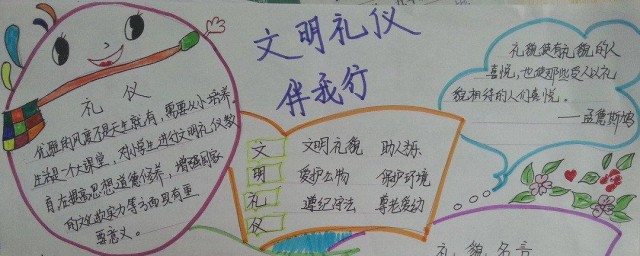 文明礼仪
伴我行
礼仪
优雅的风度不是天生就有,需要从小培养。
生活是一个大课堂,对小学生进行文明礼仪教
育在提高思想道德修养,增强国家
的文化软实力等方面具有重
要意义。
文 文明礼貌 助人为乐
明 爱护公物 保护环境
礼 遵纪守法 尊老爱幼
仪
礼貌使有礼貌的人
喜悦,也使那些受人以礼
貌相待的人们喜悦。
——孟德斯鸠
礼貌名言